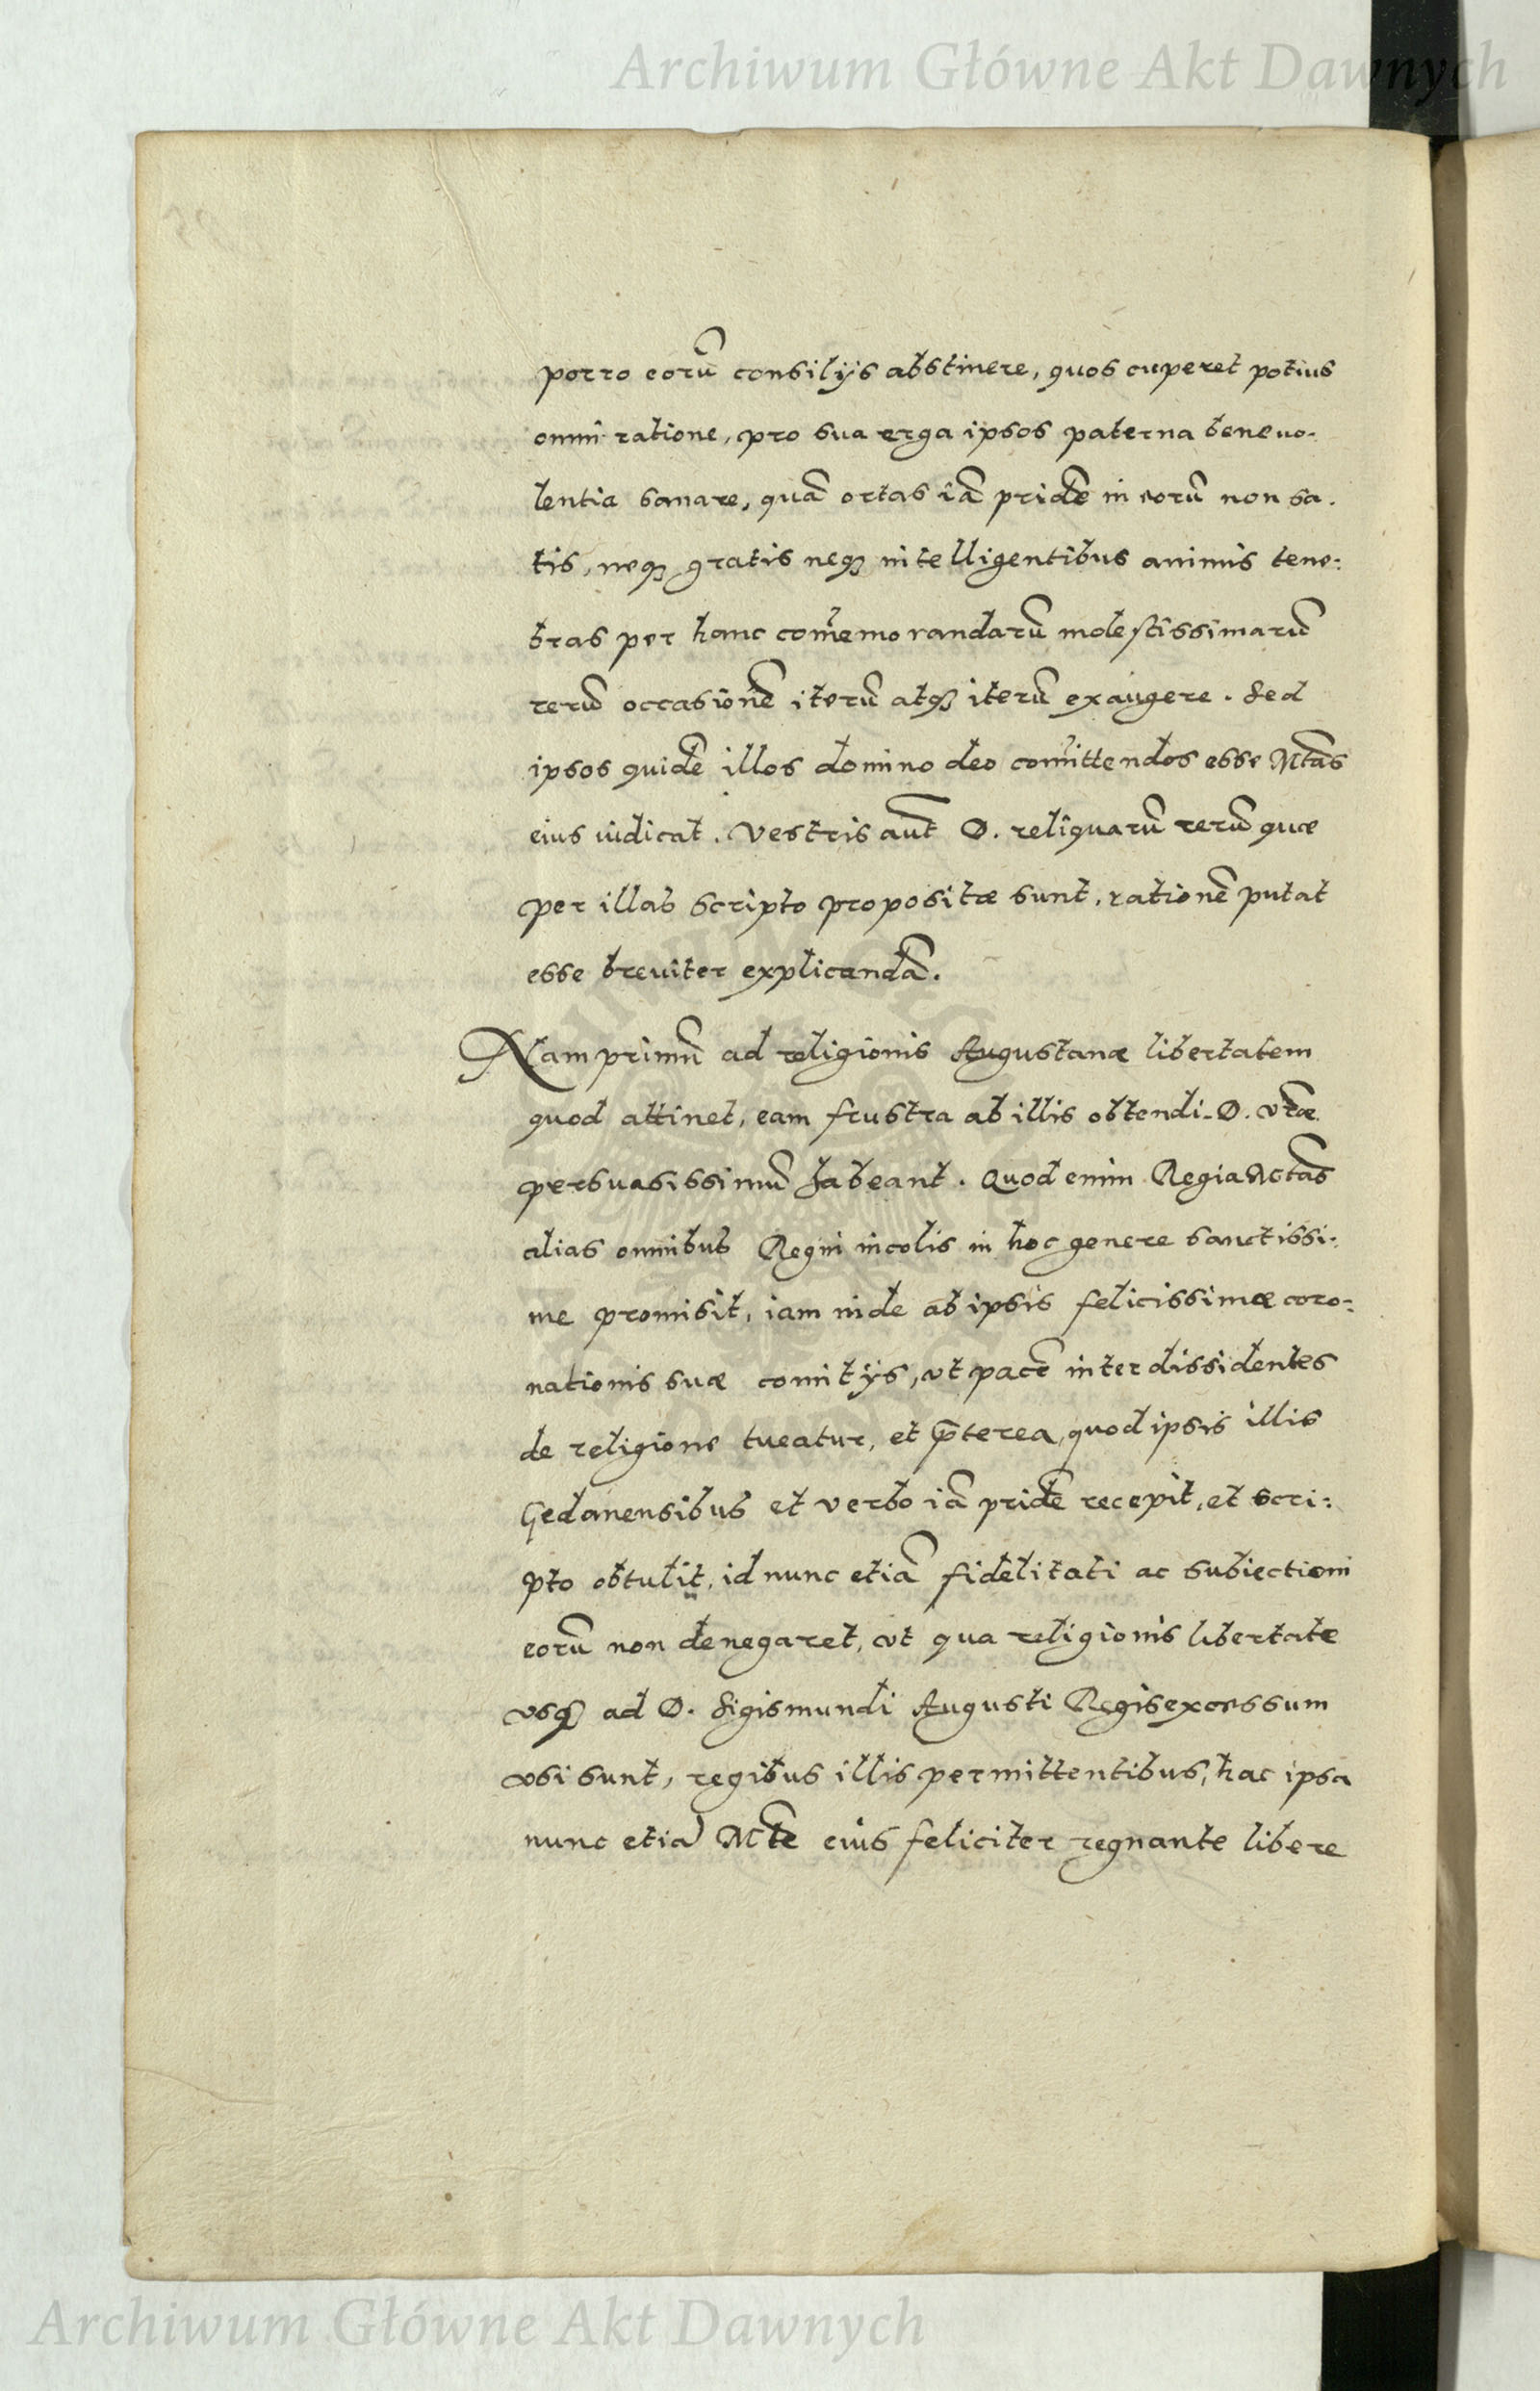 Archiwum Główne Akt Dawnych
porro eorū consilijs abstinere, quos cuperet potius
omni ratione, pro sua erga ipsos paterna beneuo-
lentia sanare, quā ortas iā pridē in eorū non sa-
tis, neqꝫ gratis neqꝫ intelligentibus animis tene:
bras per hanc com̄emorandarū molestissimarū
rerū occasionē iterū atqꝫ iterū exaugere. Sed
ipsos quidē illos domino deo com̄ittendos esse Mtās
eius iudicat. Vestris aūt D. reliquarū rerū quæ
per illas scripto propositæ sunt, rationē putat
esse breuiter explicandā.
Nam primū ad religionis Augustanæ libertatem
quod attinet, eam frustra ab illis obtendi. D. vr̄æ
persuasissimū habeant. Quod enim Regia Mtās
alias omnibus Regni incolis in hoc genere sanctissi:
me promisit, iam inde ab ipsis felicissimæ coro:
nationis suæ comitijs, vt pacē inter dissidentes
de religione tueatur, et p̄terea, quod ipsis illis
Gedanensibus et verbo iā pridē recepit, et scri:
pto obtulit, id nunc etiā fidelitati ac subiectioni
eorū non denegaret, vt qua religionis libertate
vsqꝫ ad D. Sigismundi Augusti Regis excessum
vsi sunt, regibus illis permittentibus, hac ipsa
nunc etiā Mtē eius feliciter regnante libere
Archiwum Główne Akt Dawnych